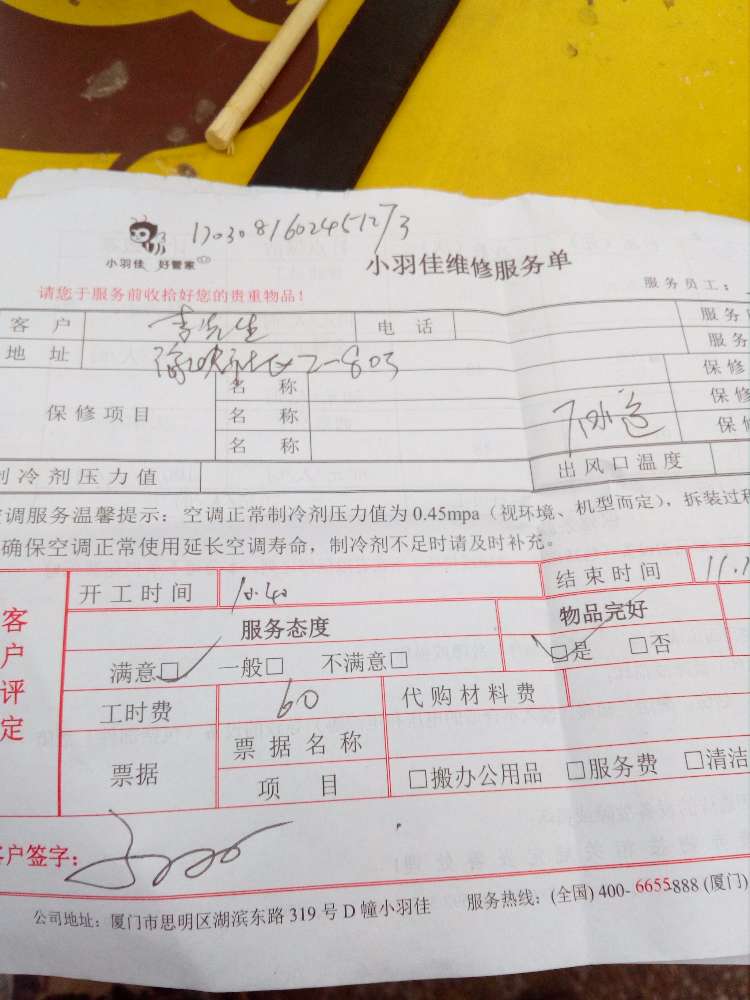 1703081602451273
小羽佳 好管家
小羽佳维修服务单
请您于服务前收拾好您的贵重物品!
服务员工:
客户 李先生 电话 服务
地址 2-803 服务
保修项目 名称 保修
名称 保修
名称 保
制冷剂压力值 出风口温度
空调服务温馨提示:空调正常制冷剂压力值为 0.45mpa(视环境、机型而定),拆装过程
确保空调正常使用延长空调寿命,制冷剂不足时请及时补充。
客户评定
开工时间 10.40 结束时间 11.
服务态度 物品完好
满意□ 一般□ 不满意□ □是 □否
工时费 60 代购材料费
票据 票据名称
项目 □搬办公用品 □服务费 □清洁
客户签字:
公司地址:厦门市思明区湖滨东路 319 号 D 幢小羽佳 服务热线:(全国) 400-6655888 (厦门)